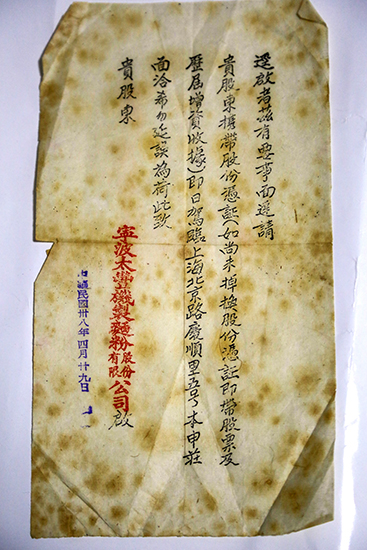 逕啟者茲有要事面邀請
貴股東攜帶股份憑証(如尚未掉換股份憑証即帶股票及
歷屆增資收據)即日駕臨上海北京路慶順里五号本申莊
面洽希勿延誤為荷此致
貴股東
寧波太豐機製麵粉股份有限公司啟
中華民國卅八年四月廿九日